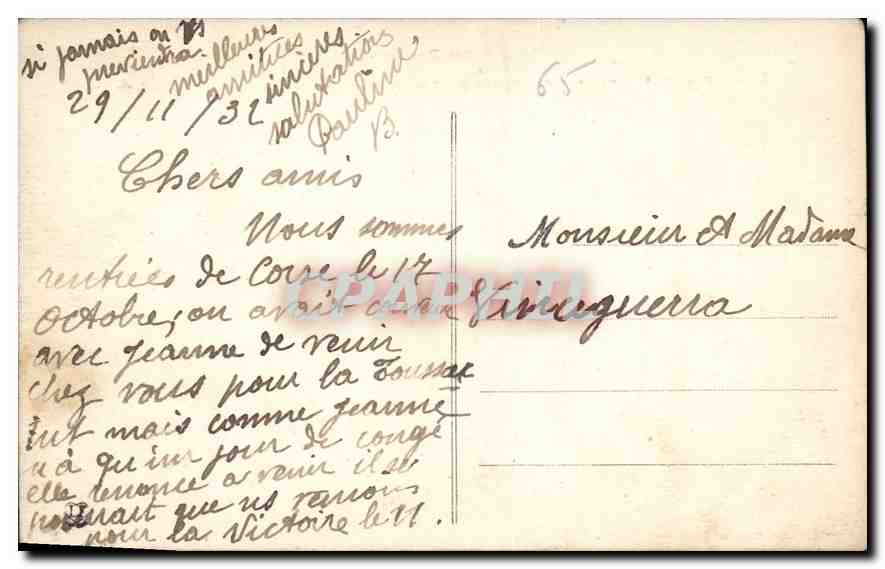 29/11/32
Chers amis
Nous sommes
rentrées de Corse le 17
octobre, on avait
avec Jeanne de venir
chez vous pour la Toussai
nt mais comme Jeanne
n'a qu'un jour de congé
elle renonce a venir il se
pourrait que ns venions
pour la Victoire le 11.
si jamais on vs
previendra.
meilleures
amitiées
sincères
salutations
Pauline
B.
65
Monsieur et Madame
Vinciguerra
CPAPHIL